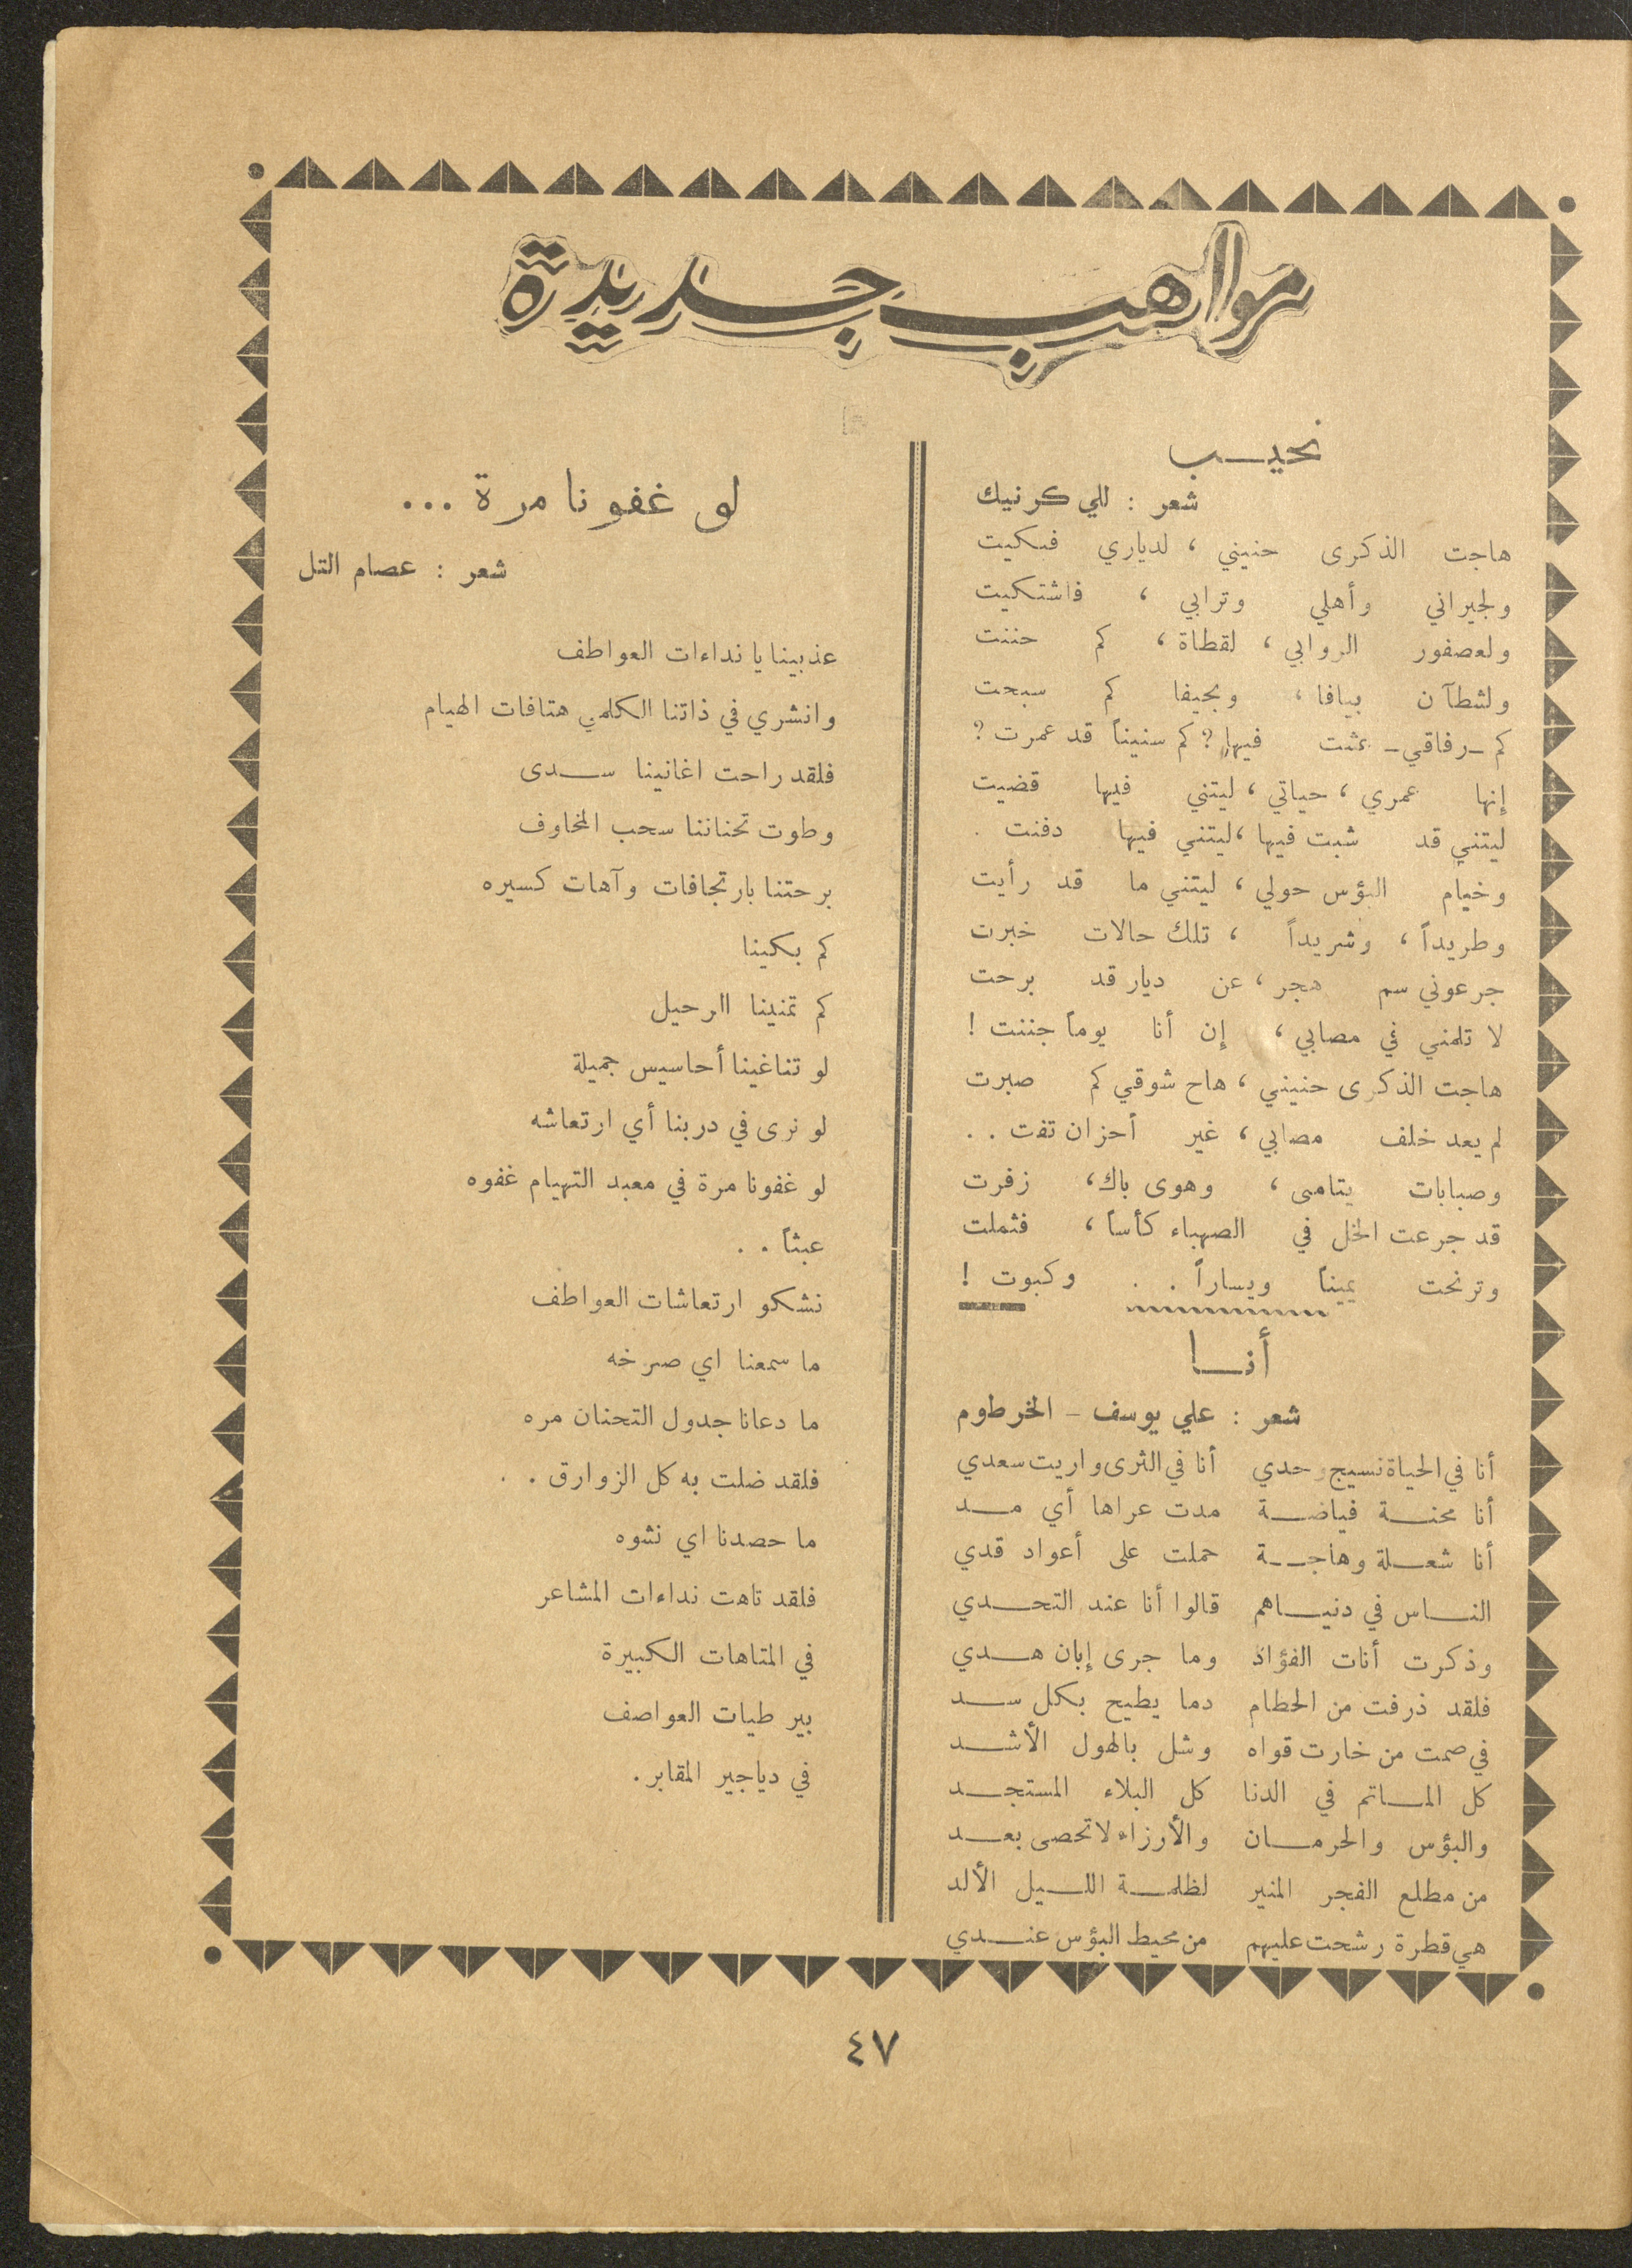 مواهب جديدة
نحيب
شعر : للي كرنيك
هاجت الذكرى حنيني ، لدياري فبكيت
ولجيراني وأهلي وترابي ، فاشتكيت
ولعصفور الروابي ، لقطاة ، كم حننت
ولشطآن بيافا ، وبحيفا كم سبحت
كم – رفاقي – عشت فيها ؟ كم سنيناً قد عمرت ؟
إنها عمري ، حياتي ، ليتني فيها قضيت
ليتني قد شبت فيها ، ليتني فيها دفنت .
وخيام البؤس حولي ، ليتني ما قد رأيت
وطريداً ، وشريداً ، تلك حالات خبرت
جرعوني سم هجر ، عن ديار قد برحت
لا تلمني في مصابي ، إن أنا يوماً جننت !
هاجت الذكرى حنيني ، هاج شوقي كم صبرت
لم يعد خلف مصابي ، غير أحزان تفت . .
وصبابات يتامى ، وهوى باك ، زفرت
قد جرعت الخل في الصهباء كأساً ، فثملت
وترنحت يميناً ويساراً . . وكبوت !
أنا
شعر : علي يوسف – الخرطوم
أنا في الحياة نسيج وحدي أنا في الثرى واريت سعدي
أنا محنة فياضة مدت عراها أي مد
أنا شعلة وهاجة حملت على أعواد قدي
الناس في دنياهم قالوا أنا عند التحدي
وذكرت أنات الفؤاد وما جرى إبان هدي
فلقد ذرفت من الحطام دما يطيح بكل سد
في صمت من خارت قواه وشل بالهول الأشد
كل المآتم في الدنا كل البلاء المستجد
والبؤس والحرمان والأرزاء لا تحصى بعد
من مطلع الفجر المنير لظلمة الليل الألد
هي قطرة رشحت عليهم من محيط البؤس عندي
لو غفونا مرة ...
شعر : عصام التل
عذبينا يا نداءات العواطف
وانشري في ذاتنا الكلمى هتافات الهيام
فلقد راحت اغانينا سدى
وطوت تحناننا سحب المخاوف
برحتنا بارتجافات وآهات كسيره
كم بكينا
كم تمنينا االرحيل
لو تناغينا أحاسيس جميلة
لو نرى في دربنا أي ارتعاشه
لو غفونا مرة في معبد التهيام غفوه
عبثاً . .
نشكو ارتعاشات العواطف
ما سمعنا اي صرخه
ما دعانا جدول التحنان مره
فلقد ضلت به كل الزوارق . .
ما حصدنا اي نشوه
فلقد تاهت نداءات المشاعر
في المتاهات الكبيرة
بير طيات العواصف
في دياجير المقابر .
٤٧